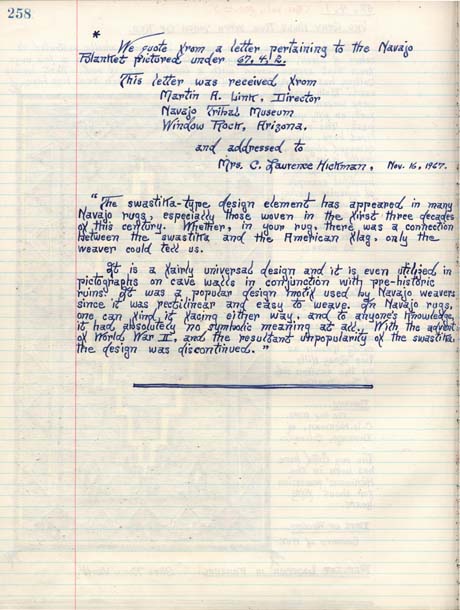 258
*
We quote from a letter pertaining to the Navajo
Blanket pictured under 67.4.2.
This letter was received from
Martin A. Link, Director
Navajo Tribal Museum
Window Rock, Arizona.
and addressed to
Mrs. C. Lawrence Hickman, Nov. 16, 1967.
"The swastika-type design element has appeared in many
Navajo rugs, especially those woven in the first three decades
of this century. Whether, in your rug, there was a connection
between the swastika and the American flag, only the
weaver could tell us.
It is a fairly universal design and it is even utilized in
pictographs on cave walls in conjunction with pre-historic
ruins. It was a popular design motif used by Navajo weavers
since it was rectilinear and easy to weave. In Navajo rugs,
one can find it facing either way, and to anyone's knowledge,
it had absolutely no symbolic meaning at all. With the advent
of World War II, and the resultant unpopularity of the swastika,
the design was discontinued."